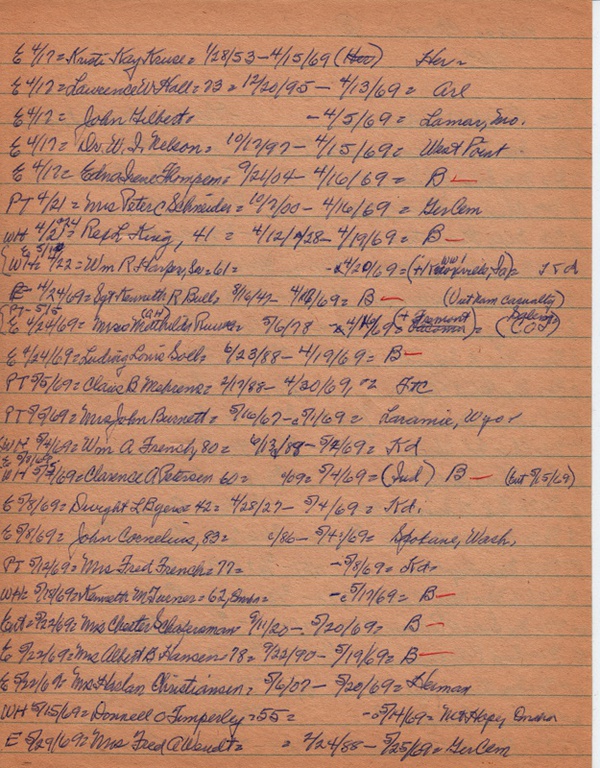 E 4/17 = Kristi Kay Kruse = 1/28/53 - 4/15/69 (Hoo) Her =
E 4/17 = Lawrence W Hall = 73 = 12/20/95 - 4/13/69 = Arl
E 4/17 = John Gilbert = - 4/5/69 = Lamar, Mo.
E 4/17 = Dr. W. I. Nelson = 10/17/97 - 4/15/69 = West Point
E 4/17 = Edna Irene Thompsen = 9/24/04 - 4/16/69 = B -
PT 4/21 = Mrs Peter C Schneider = 10/7/00 - 4/16/69 = Ger Cem
WH 4/21 = Rex L King, 41 = 4/12/28 - 4/19/69 = B -
WH = 4/22 = Wm R Harper, Sr = 61 = - 4/20/69 = Kd
E = 4/24/69 = Sgt Kenneth R Bulls 8/16/47 - 4/ /69 = B - (Viet Nam casualty)
PT - 5/5
E 4/24/69 = Mrs Mathilda 5/6/78 - (+ Fremont =
E 4/24/69 = Ludwig Louis Soll = 6/23/88 - 4/19/69 = B -
PT 5/5/69 = Claus B Mehrens = 2/17/88 - 4/20/69, =
PT 5/5/69 = Mrs John Burnett = 5/16/67 - 5/1/69 = Laramie, Wyo
WH 5/4/69 = Wm A French, 80 = 6/13/88 - 5/2/69 = Kd
E 5/8/69
WH 5/5/69 = Clarence A Petersen 60 = /09 = 5/4/69 = (Ind) B - (Ent 5/15/69)
E 5/8/69 = Dwight L Byers = 42 = 4/28/27 - 5/4/69 = Kd.
E 5/8/69 = John Cornelius, 83 = /86 - 5/4/69 = Spokane, Wash.
PT 5/12/69 = Mrs Fred French = 77 = - 5/8/69 = Kd =
WH = 5/18/69 = Kenneth M Turner = 62, = - 5/17/69 = B -
Ent = 5/22/69 = Mrs Chester 9/11/20 - 5/20/69 = B -
E 5/22/69 = Mrs Albert B Hansen = 78 = 9/22/90 - 5/19/69 = B -
E 5/22/69 = Mrs Harlan Christiansen = 5/6/07 - 5/20/69 = Herman
WH 5/15/69 = Donnell O Timperley = 55 = - 5/14/69 = Mt Hope, Omaha
E 5/29/69 = Mrs Fred A Wendt = = 2/24/88 - 5/25/69 = Ger Cem